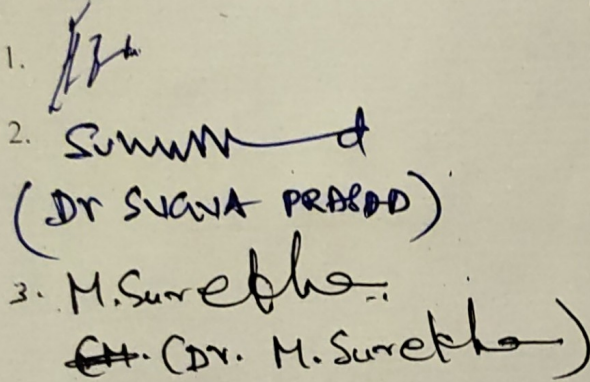 1.
2.
(Dr SUGUNA PRASAD)
3. M. Surekha
(Dr. M. Surekha)